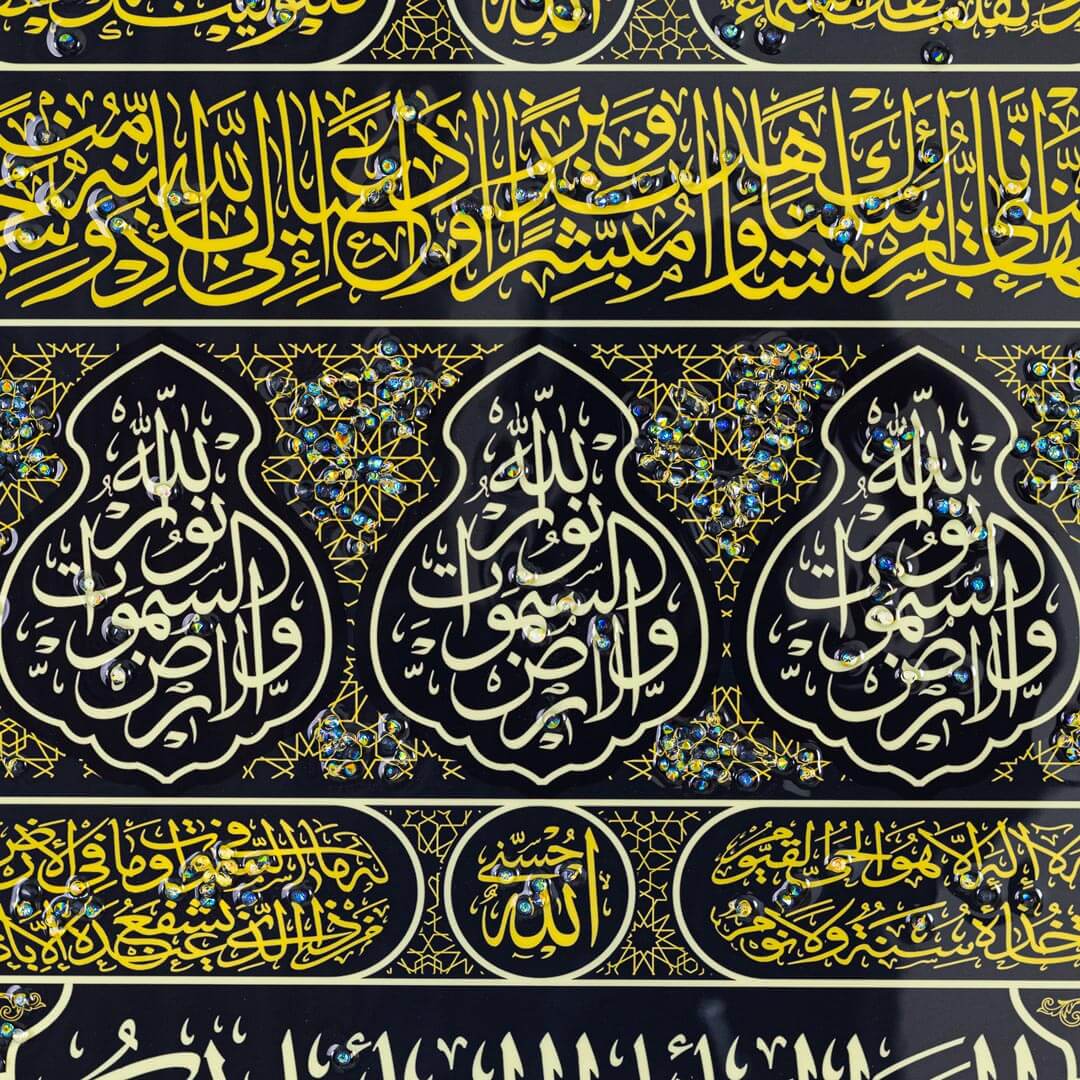 الله
النبي إنا أرسلناك شاهدا ومبشرا ونذيرا وداعيا إلى الله بإذنه
الله نور السموات والأرض
الله نور السموات والأرض
الله نور السموات والأرض
إله إلا هو الحي القيوم
سنة ولا نوم
الله حسبي
له ما في السموت وما في الأرض
من ذا الذي يشفع عنده إلا